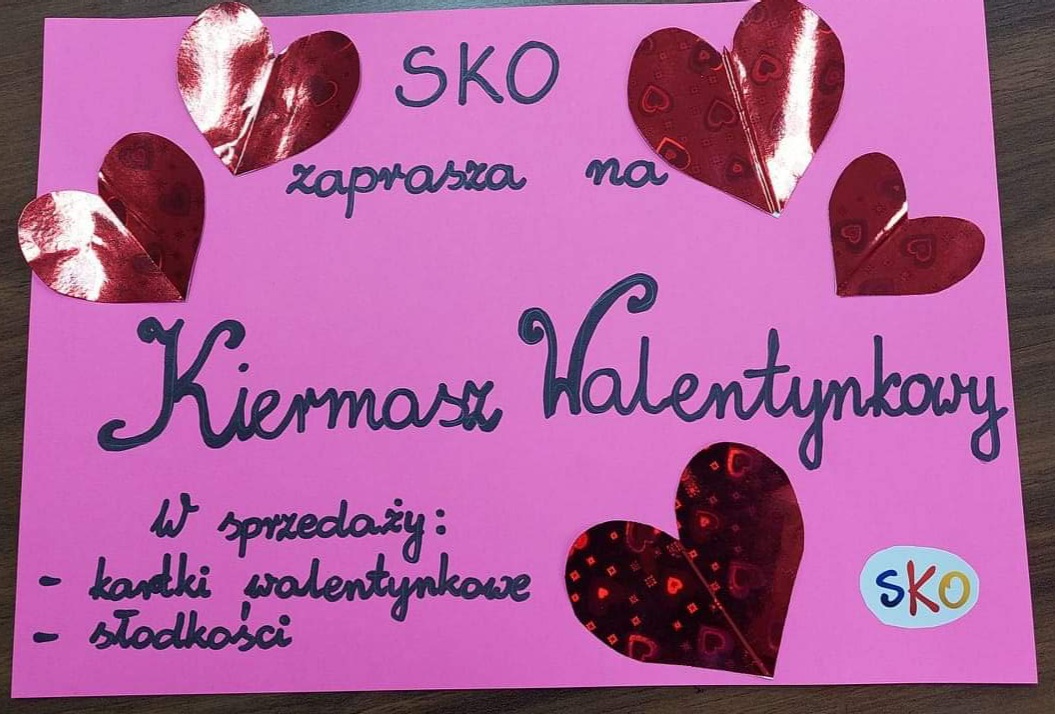 SKO
zaprasza na
Kiermasz Walentynkowy
W sprzedaży:
- kartki walentynkowe
- słodkości
SKO